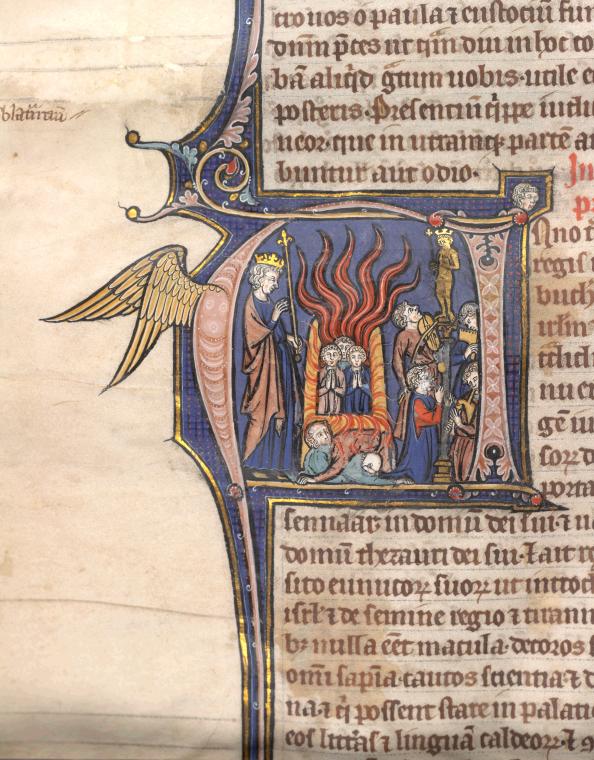 cio uos o paula ⁊ eustociū fun
dnm̄ p̄ces ut qm̄ diu in hoc co
bā aliq̄d gtum uobis utile e
posteris. Presentiū q̄ppe iudi
ueor. que in utramq; partē a
buntur aut odio.
Jn
p
Anno t
regis i
buch
irlm̄
gē iu
porta
sennaar in domū dei sui. ⁊ ua
domū thezauri dei sui. ⁊ ait re
sito eunucoꝝ suoꝝ ut introd
isrl̄ ⁊ de semine regio ⁊ tirann
bꝫ nulla eēt macula. decoros
omi sapīa. cautos scientia ⁊ d
na. ⁊ q̄ possent stare in palati
eos litt̄as ⁊ linguā caldeoꝝ. ⁊